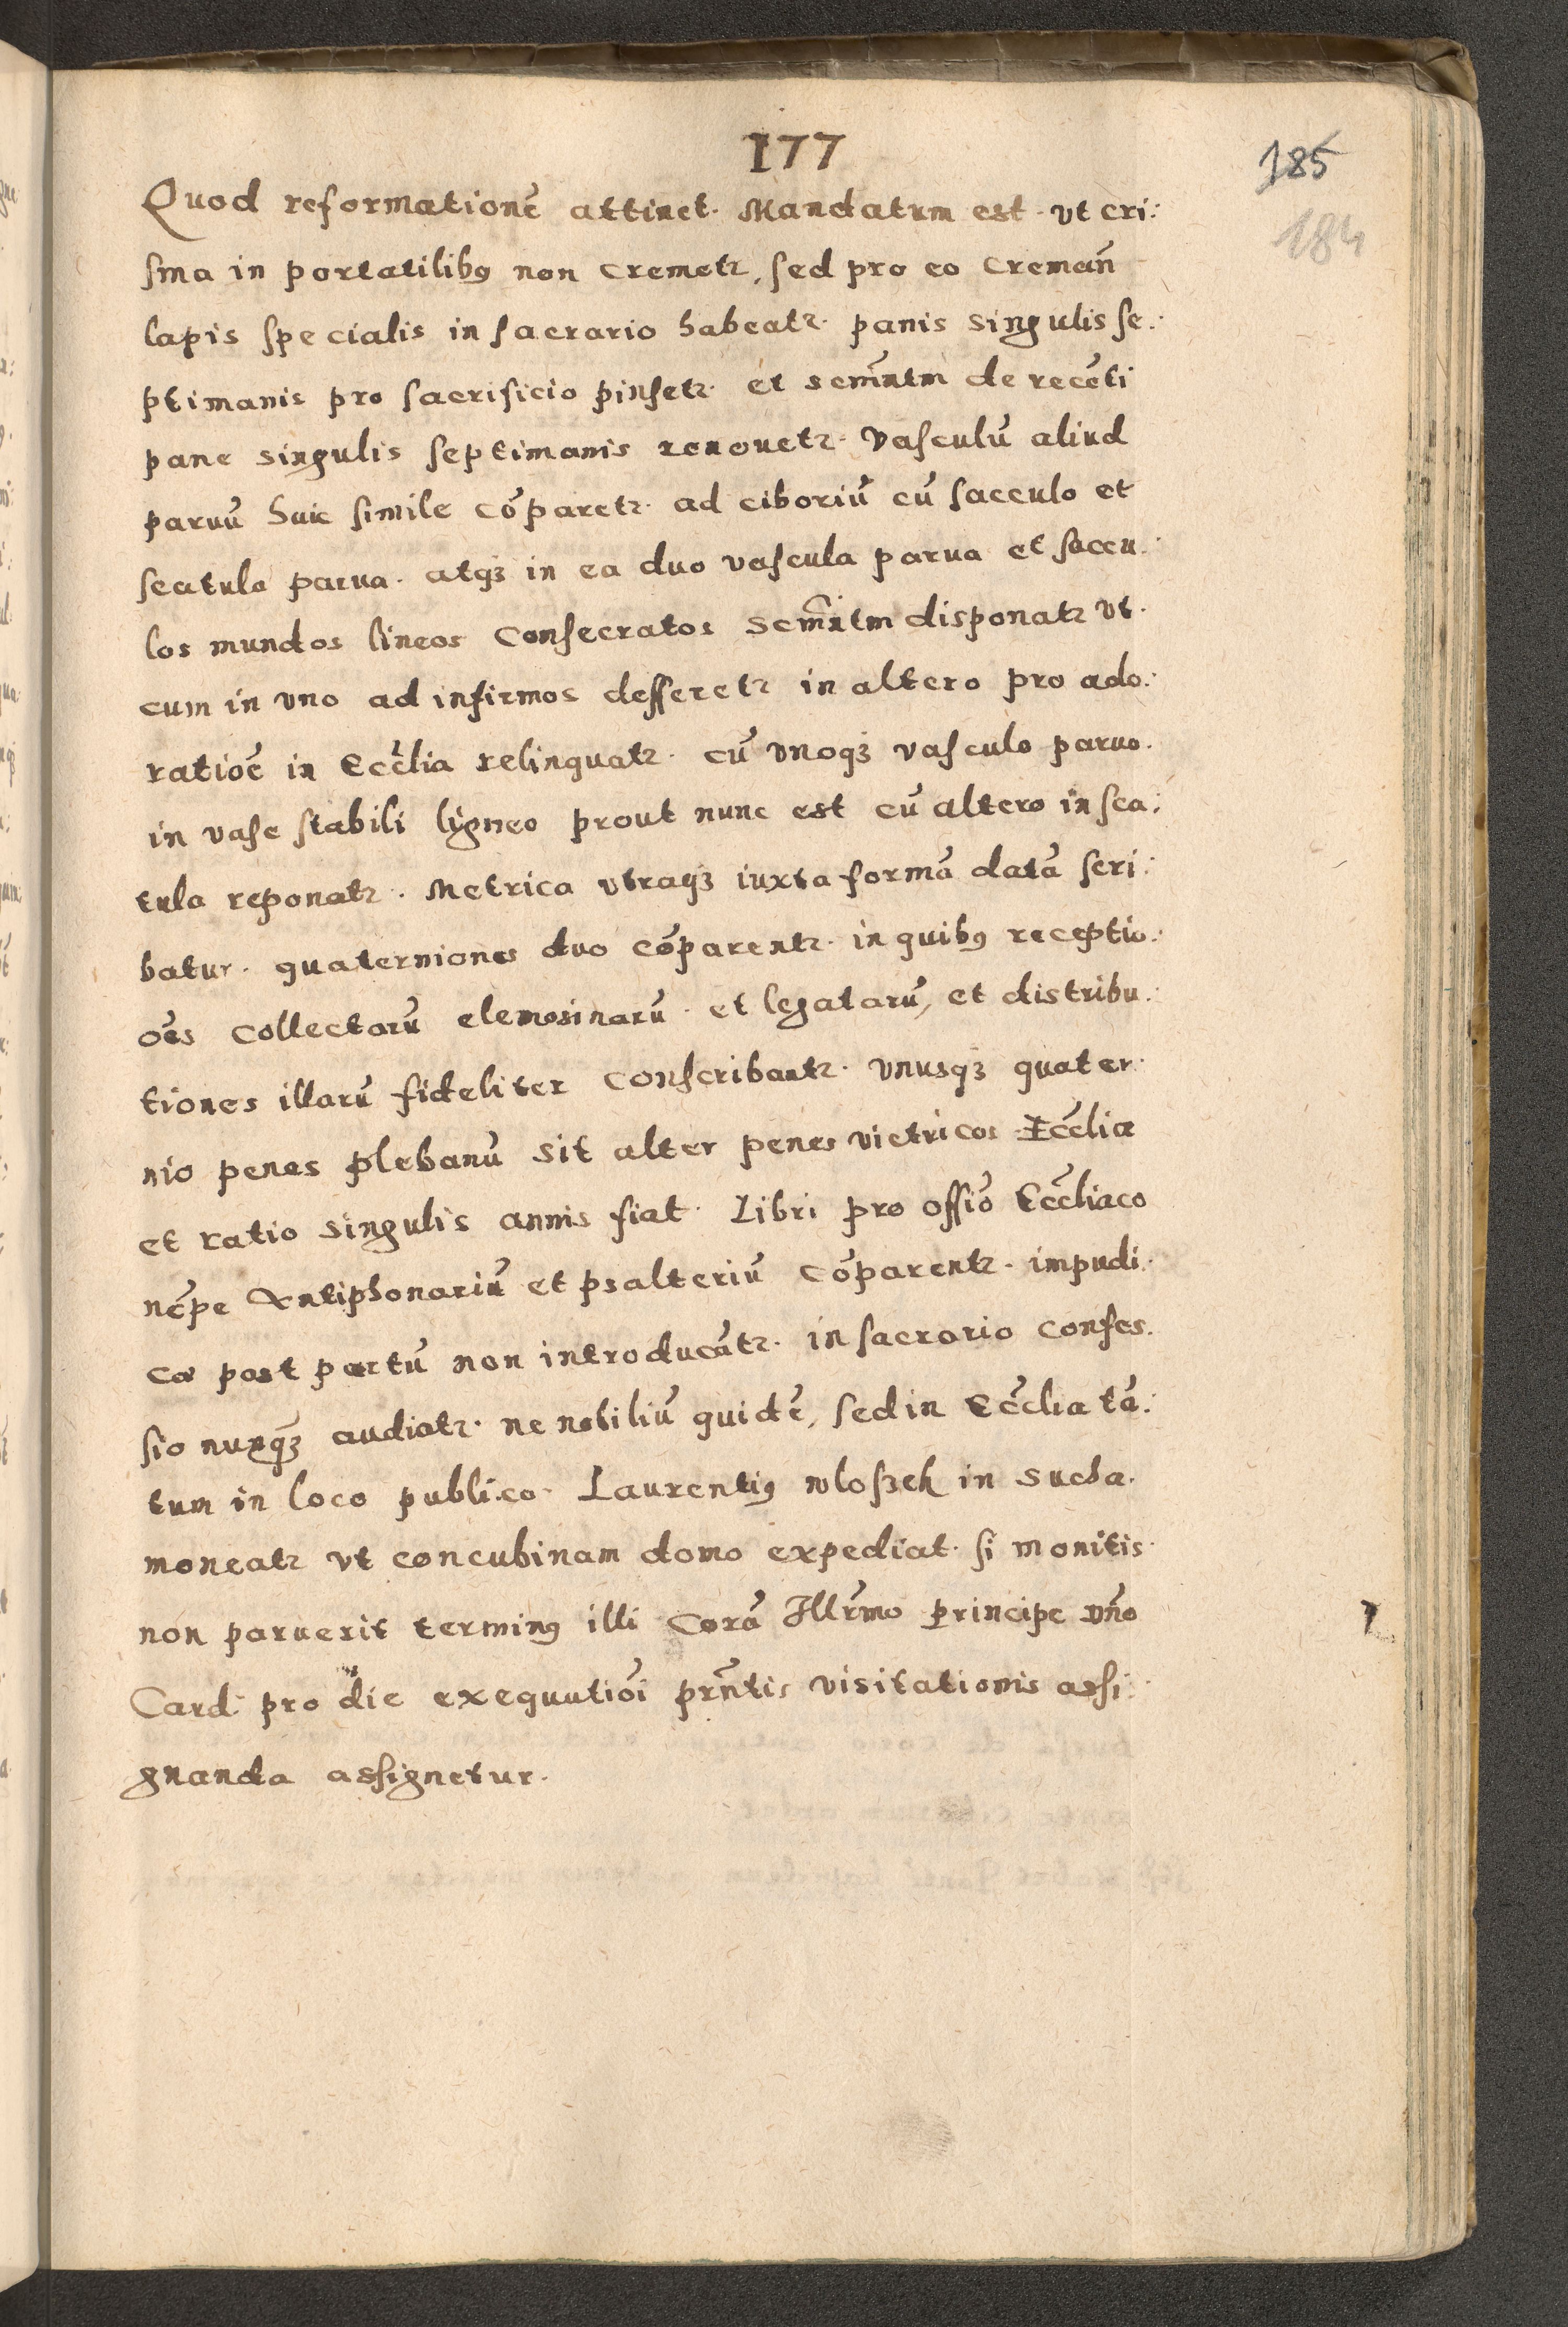 177
185
184
Quod reformationē attinet. Mandatum est. ut cri:
sma in portatilibꝰ non cremetr, sed pro eo cremān
lapis specialis in sacrario habeatr. panis singulis se:
ptimanis pro sacrificio pinsetr. et scm̄ntm de recēti
pane singulis septimanis renouetr. Vasculū aliud
paruū huic simile cōparetr. ad ciboriū cū sacculo et
scatula parua. atqꝫ in ea duo vascula parua et saccu:
los mundos lineos consecratos scm̄ntm disponatr ut.
cum in vno ad infirmos defferetr in altero pro ado:
ratiōe in Eccl̄ia relinquatr. cū vnoqꝫ vasculo paruo.
in vase stabili ligneo prout nunc est cū altero in sca:
tula reponatr. Metrica vtraqꝫ iuxta formā datā scri:
batur. quaterniones duo cōparentr. in quibꝰ receptio:
ōes collectarū elemosinarū. et legatarū, et distribu:
tiones illarū fideliter conscribantr. vnusqꝫ quater:
nio penes plebanū sit alter penes vietricos Eccl̄iæ
et ratio singulis annis fiat. Libri pro offiō Eccl̄iaco
nēpe Antiphonariū et psalteriū cōparentr. impudi:
cæ post partū non introducātr. in sacrario confes:
sio nunqꝫ audiatr. ne nobiliū quidē, sed in Eccl̄ia tā:
tum in loco publico. Laurentiꝰ wloszek in sucha.
moneatr vt concubinam domo expediat. si monitis.
non paruerit terminꝰ illi corā Illr̄mo principe Dn̄o
Card: pro die exequutiōi prn̄tis visitationis assi:
gnanda assignetur.